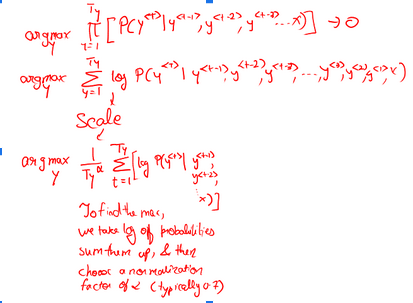 argmax_y ∏_{t=1}^{Ty} [ P(y^{<t>} | y^{<t-1>}, y^{<t-2>}, y^{<t-3>} ... x) ] → 0
argmax_y ∑_{y=1}^{Ty} log P(y^{<t>} | y^{<t-1>}, y^{<t-2>}, y^{<t-3>}, ..., y^{<3>}, y^{<2>}, y^{<1>}, x)
↓
Scale
↓
argmax_y 1/Ty^α ∑_{t=1}^{Ty} [ log P(y^{<t>} | y^{<t-1>},
y^{<t-2>},
⋮
x) ]
To find the max,
we take log of probabilities
sum them up, & then
choose a normalization
factor of α (typically 0.7)